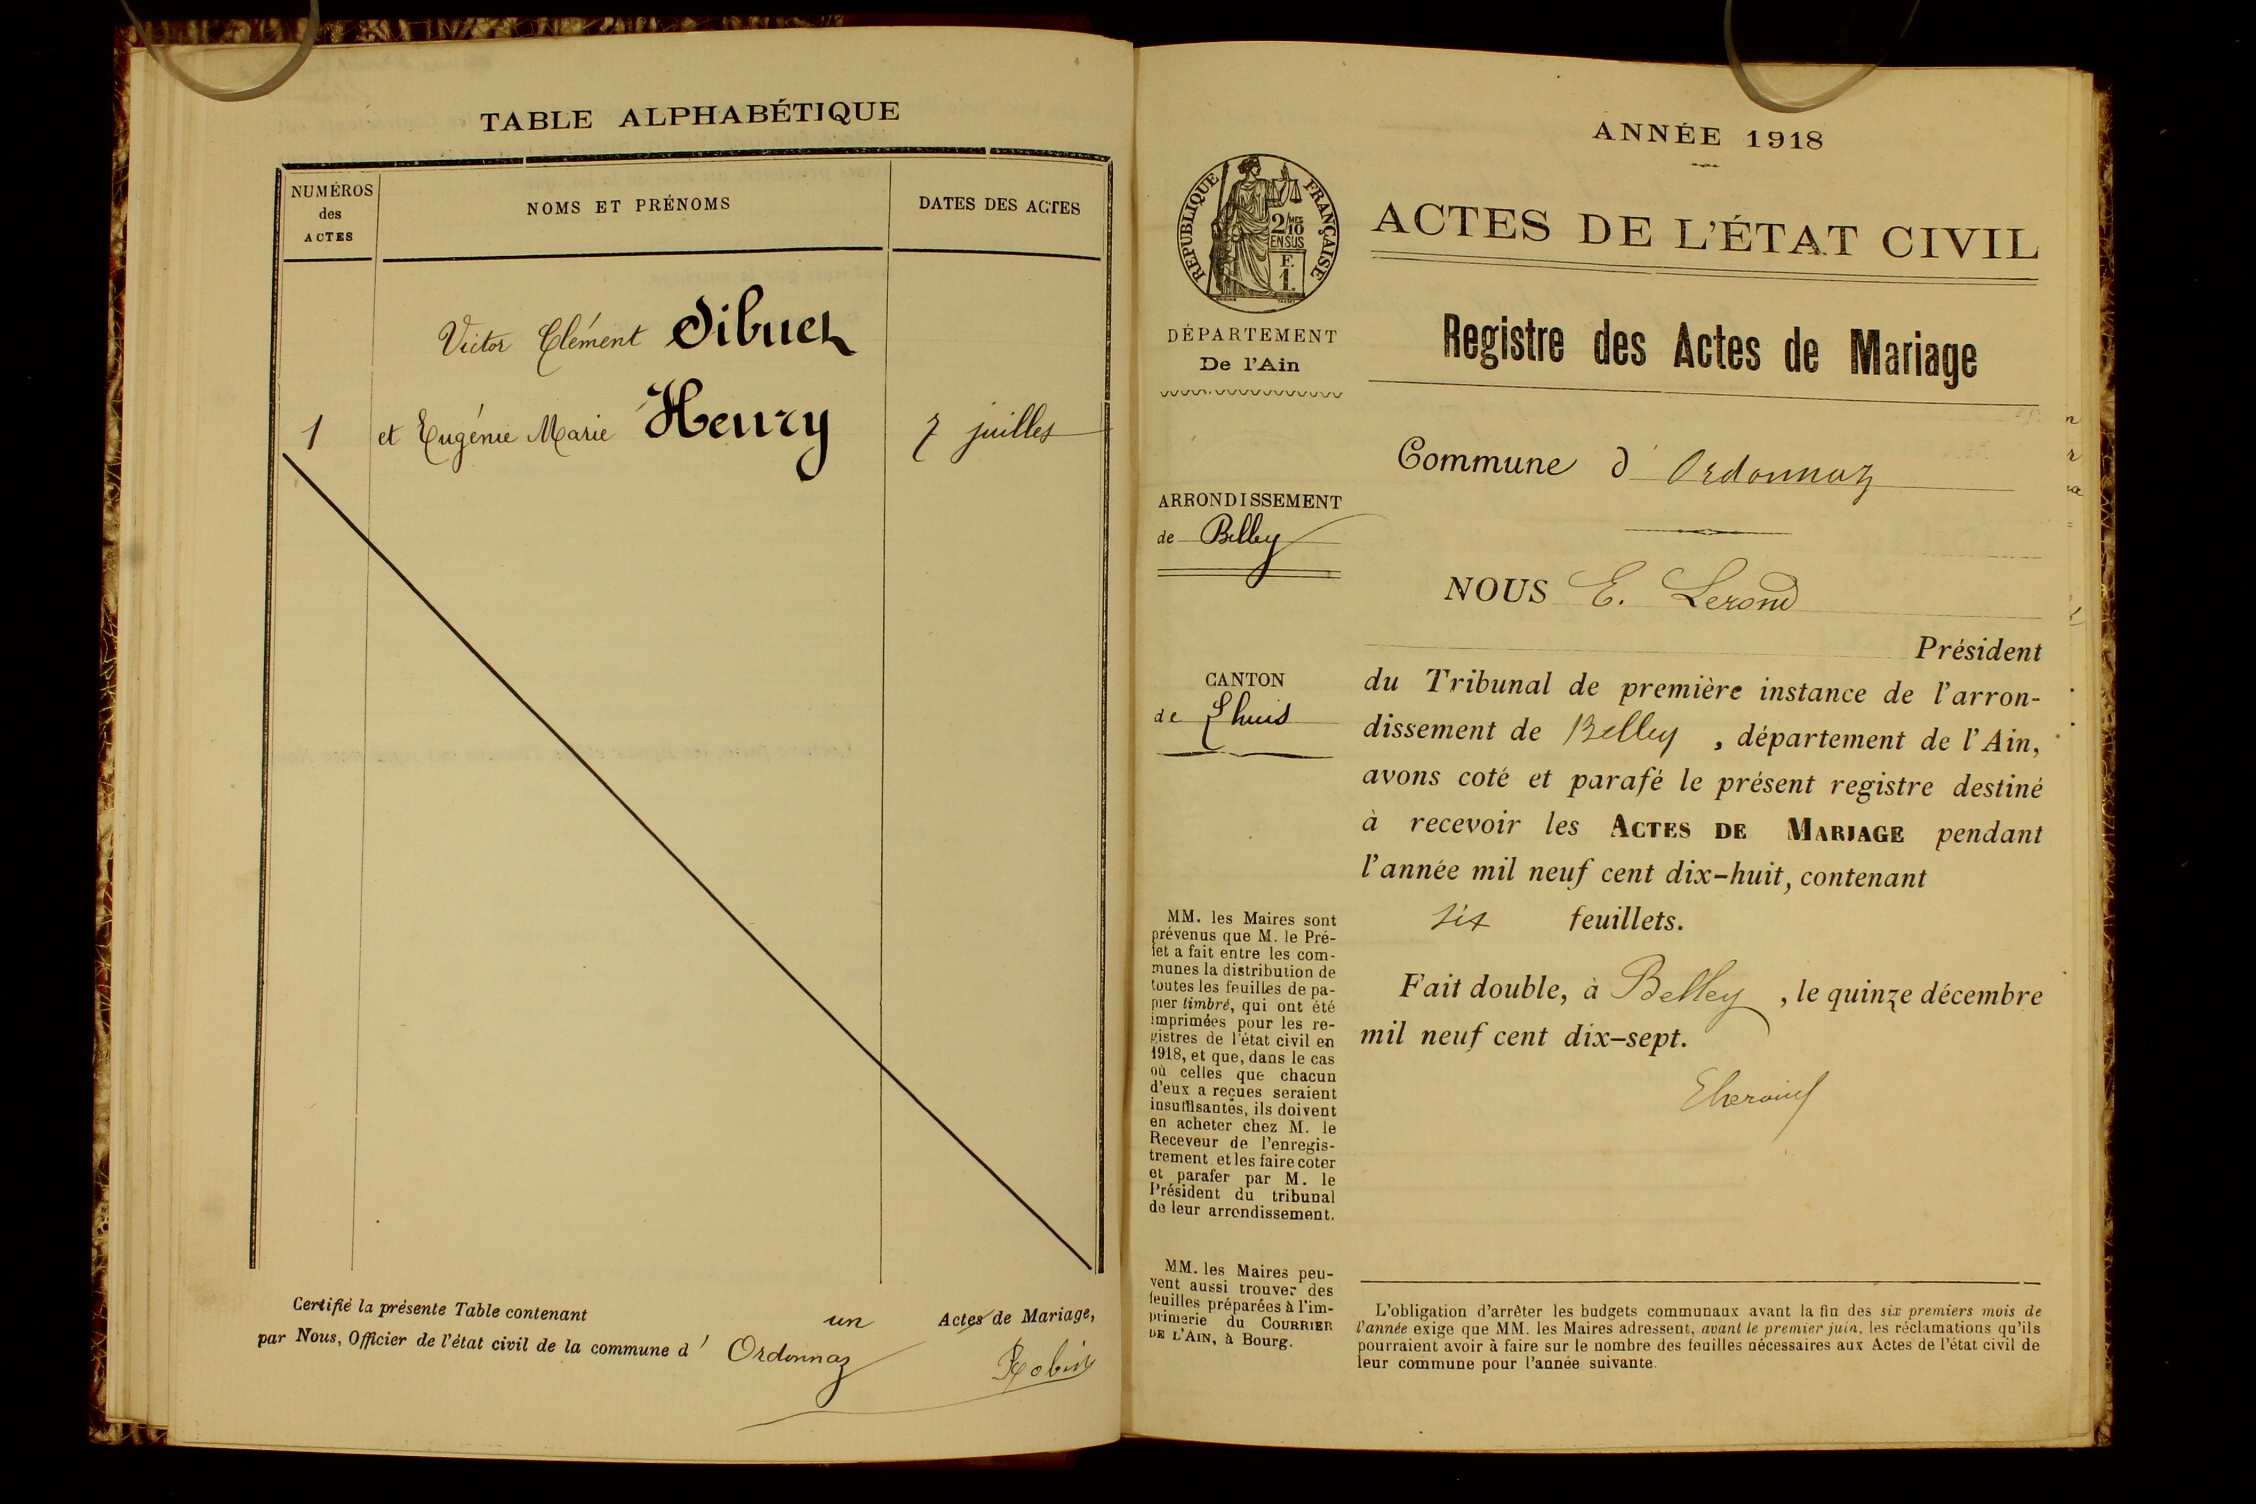 TABLE ALPHABÉTIQUE
NUMÉROS
des
ACTES
NOMS ET PRÉNOMS
DATES DES ACTES
Victor Clément Sibuet
1 et Eugénie Marie Henry 7 juillet
Certifié la présente Table contenant un Actes de Mariage,
par Nous, Officier de l'état civil de la commune d' Ordonnaz
ANNÉE 1918
ACTES DE L'ÉTAT CIVIL
RÉPUBLIQUE FRANÇAISE
2/10 MES
EN SUS
F.
1.
DÉPARTEMENT
De l'Ain
Registre des Actes de Mariage
Commune d' Ordonnaz
ARRONDISSEMENT
de Belley
NOUS E. Lerond
Président
CANTON
de Lhuis
du Tribunal de première instance de l'arron-
dissement de Belley, département de l'Ain,
avons coté et parafé le présent registre destiné
à recevoir les ACTES DE MARIAGE pendant
l'année mil neuf cent dix-huit, contenant
six feuillets.
Fait double, à Belley, le quinze décembre
mil neuf cent dix-sept.
MM. les Maires sont
prévenus que M. le Pré-
fet a fait entre les com-
munes la distribution de
toutes les feuilles de pa-
pier timbré, qui ont été
imprimées pour les re-
gistres de l'état civil en
1918, et que, dans le cas
où celles que chacun
d'eux a reçues seraient
insuffisantes, ils doivent
en acheter chez M. le
Receveur de l'enregis-
trement et les faire coter
et parafer par M. le
Président du tribunal
de leur arrondissement.
MM. les Maires peu-
vent aussi trouver des
feuilles préparées à l'im-
primerie du COURRIER
DE L'AIN, à Bourg.
L'obligation d'arrêter les budgets communaux avant la fin des six premiers mois de
l'année exige que MM. les Maires adressent, avant le premier juin, les réclamations qu'ils
pourraient avoir à faire sur le nombre des feuilles nécessaires aux Actes de l'état civil de
leur commune pour l'année suivante.